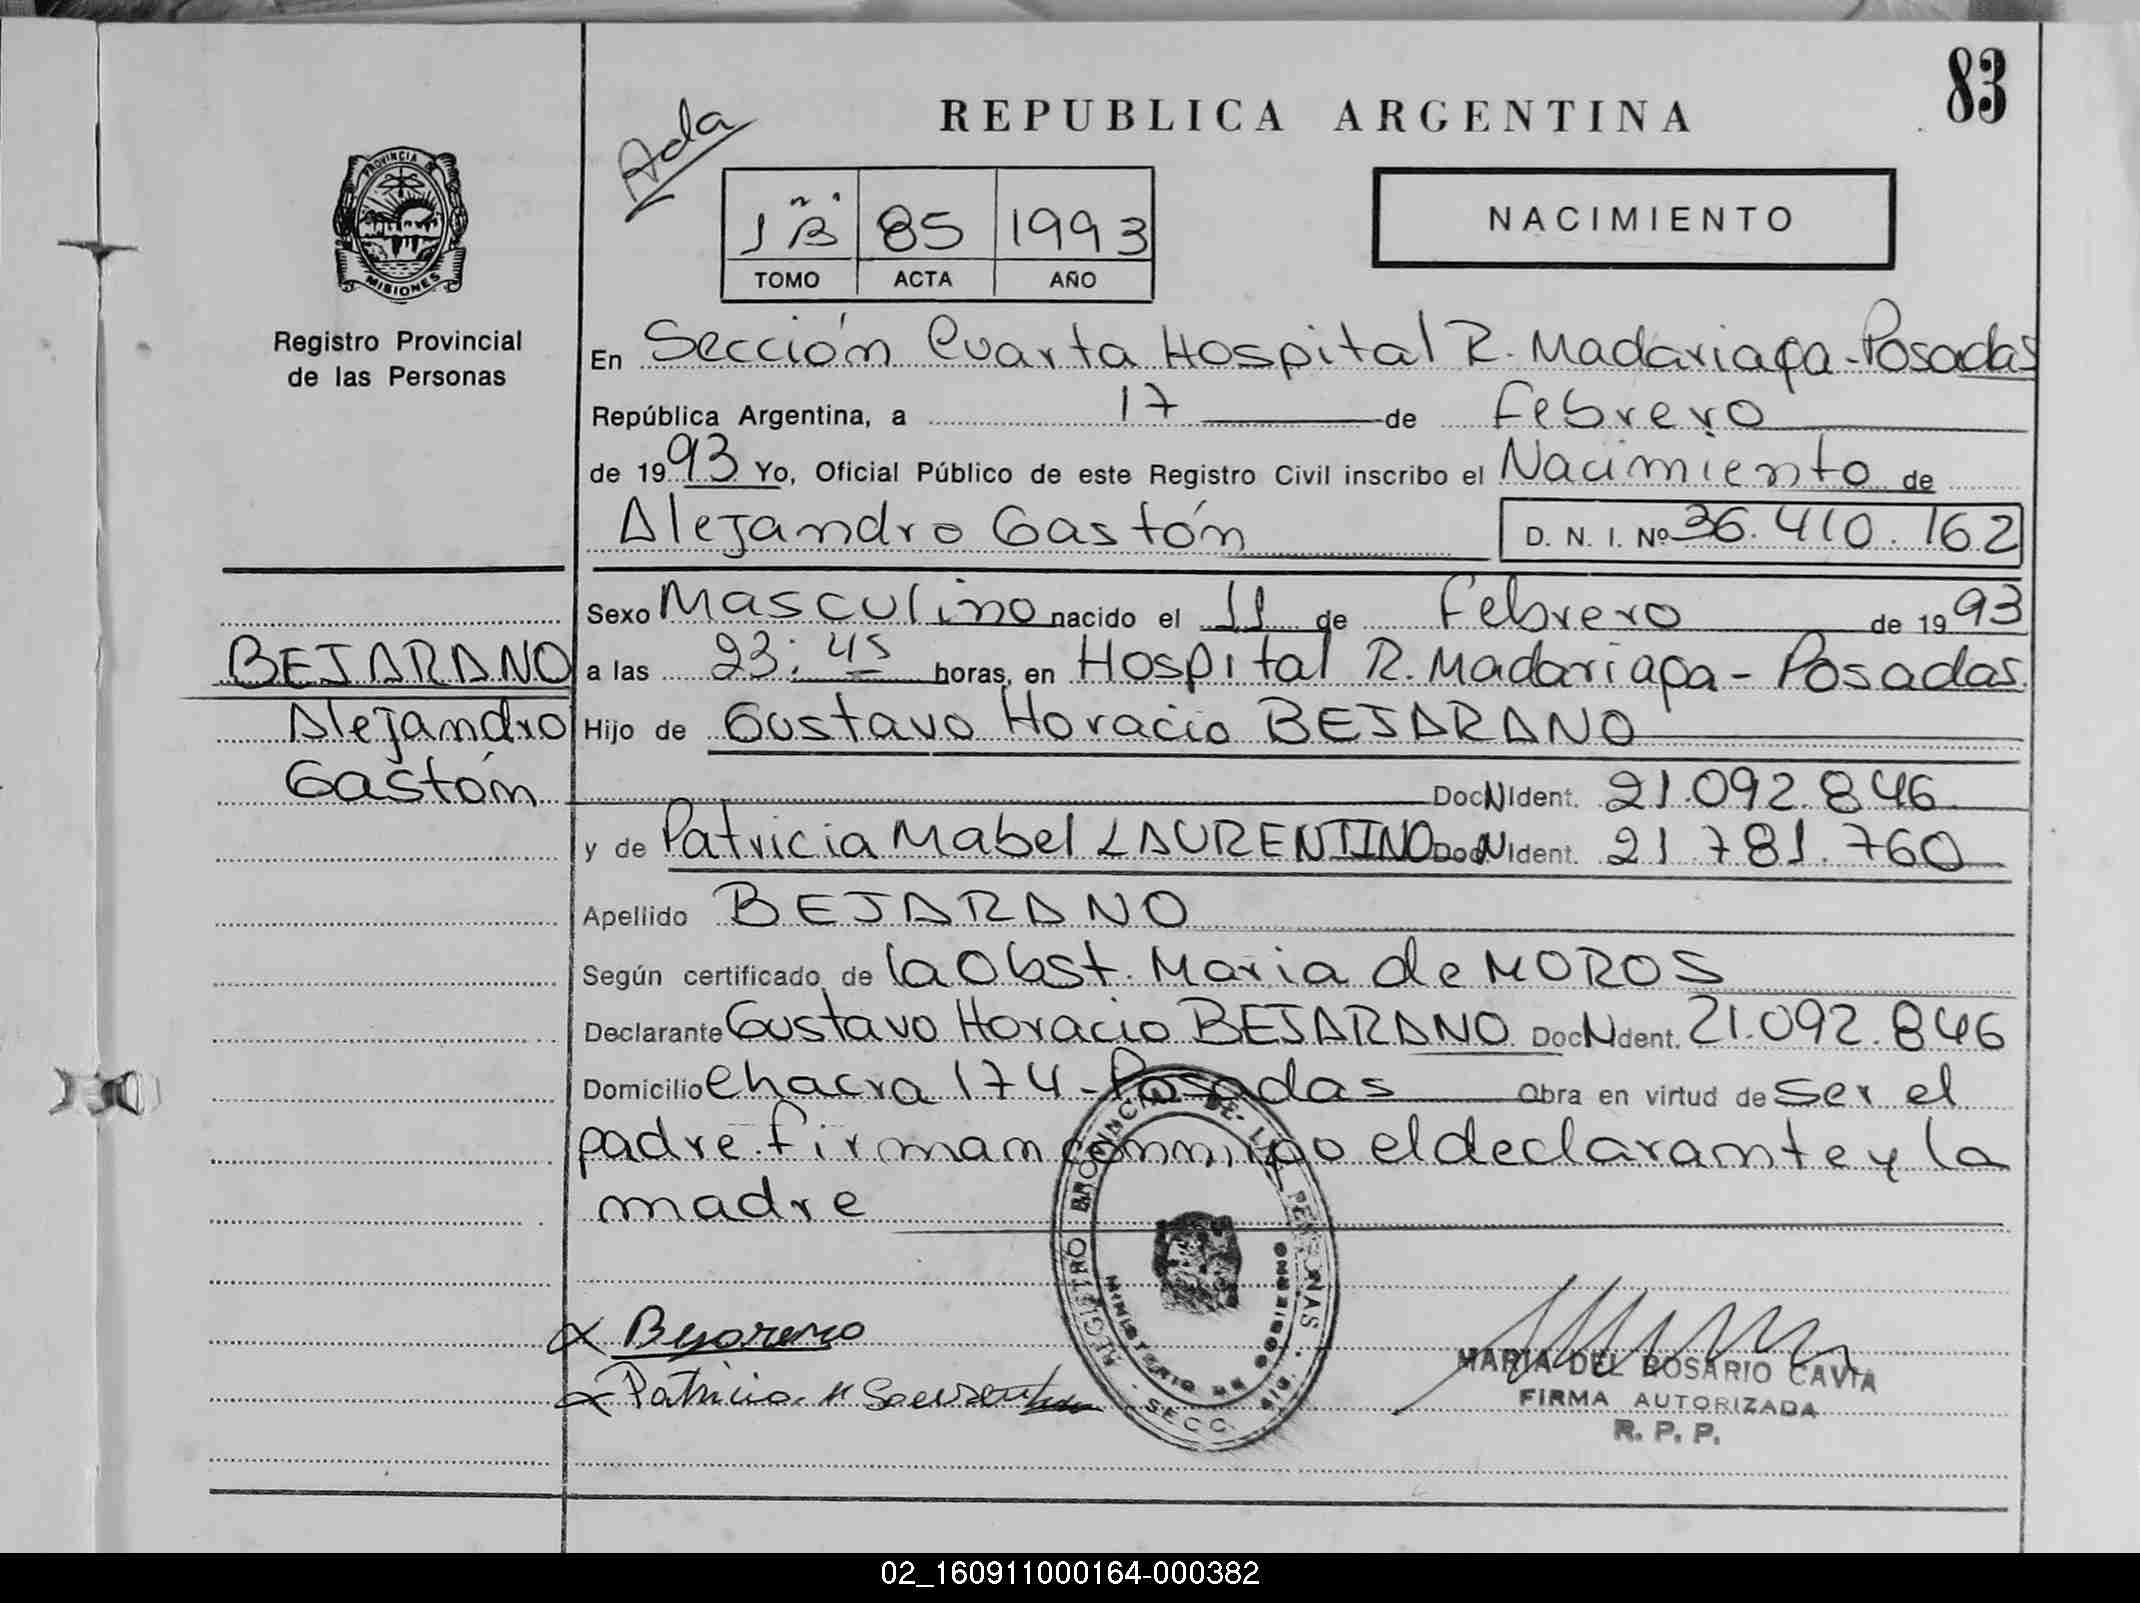 83
REPUBLICA ARGENTINA
Ada
PROVINCIA DE
MISIONES
Registro Provincial
de las Personas
1 "B" 85 1993
TOMO ACTA AÑO
NACIMIENTO
En Sección Cuarta Hospital R. Madariaga - Posadas
República Argentina, a 17 de Febrero
de 1993 Yo, Oficial Público de este Registro Civil inscribo el Nacimiento de
Alejandro Gastón D. N. I. Nº 36.410.162
Sexo Masculino nacido el 11 de Febrero de 1993
BEJARANO
Alejandro
Gastón
a las 23:45 horas, en Hospital R. Madariaga - Posadas
Hijo de Gustavo Horacio BEJARANO
Doc N Ident. 21.092.846
y de Patricia Mabel LAURENTINO Doc N Ident. 21.781.760
Apellido BEJARANO
Según certificado de la Obst. Maria de MOROS
Declarante Gustavo Horacio BEJARANO Doc N Ident. 21.092.846
Domicilio Chacra 174 - Posadas Obra en virtud de ser el
padre. firman conmigo el declarante y la
madre
REGISTRO PROVINCIAL DE LAS PERSONAS
MINISTERIO DE GOBIERNO
SECC.
Bejarano
Patricia M
MARIA DEL ROSARIO CAVIA
FIRMA AUTORIZADA
R. P. P.
02_160911000164-000382